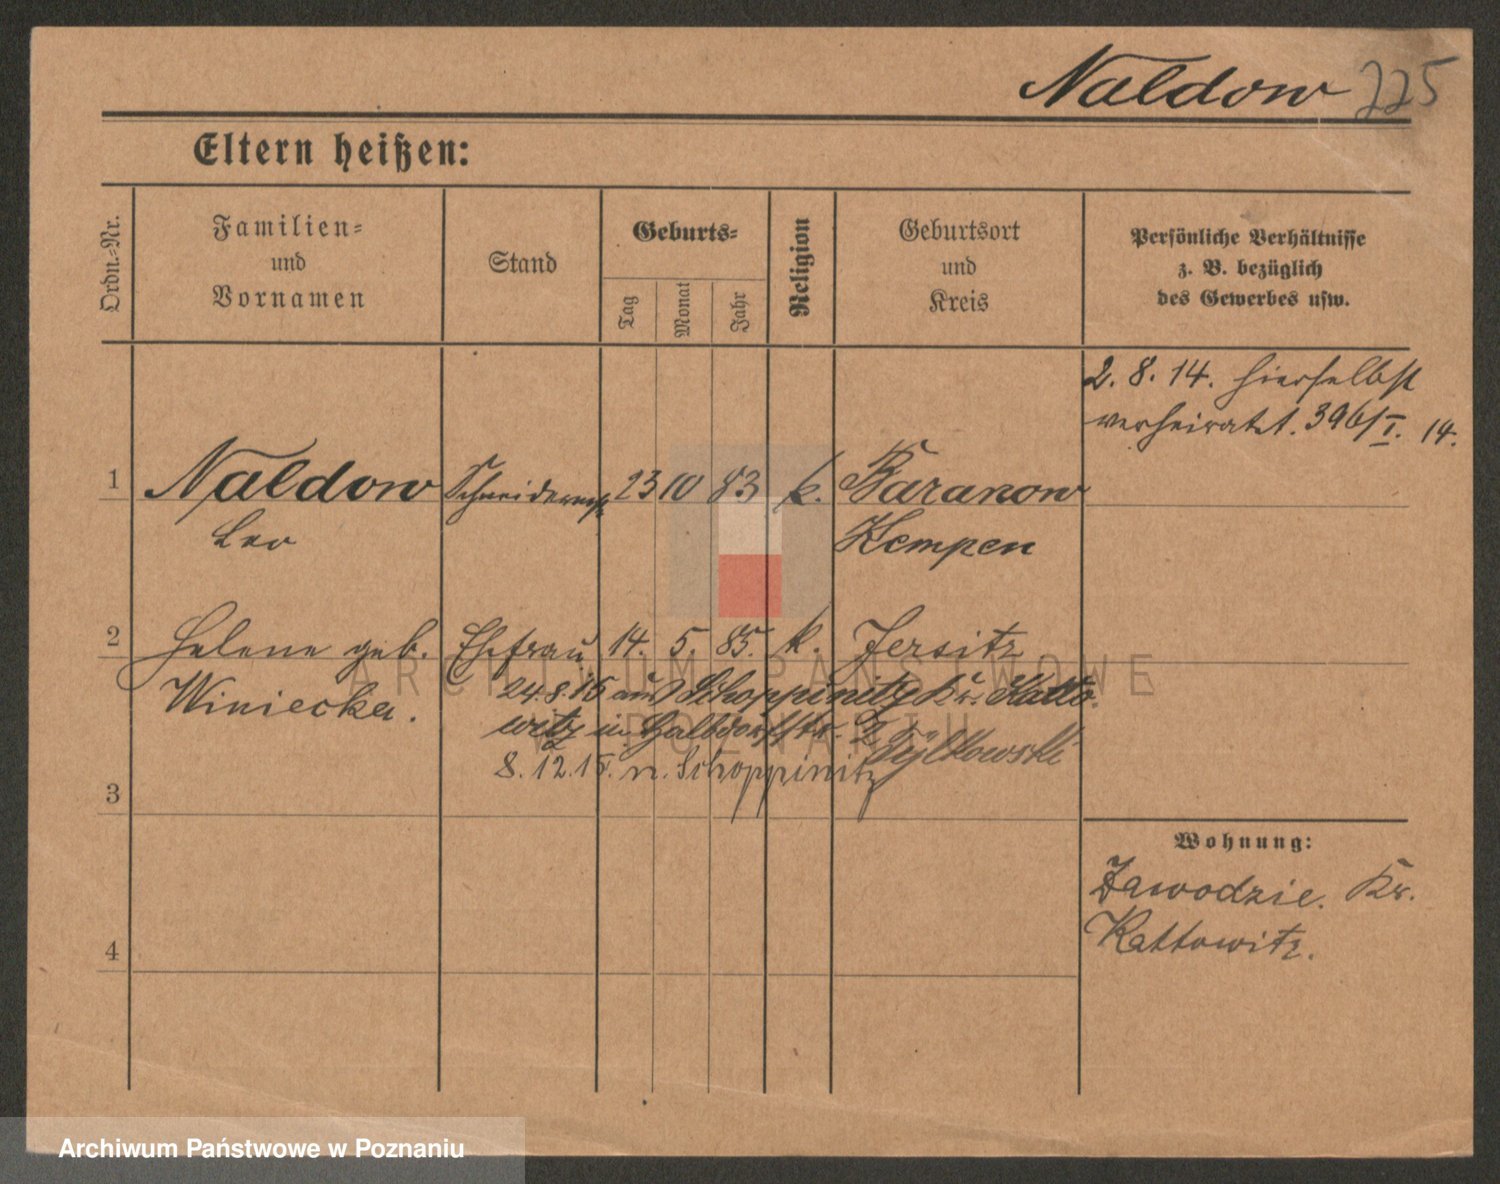 Naldow 225
Eltern heißen:
Ordn.-Nr.
Familien-
und
Vornamen
Stand
Geburts-
Tag
Monat
Jahr
Religion
Geburtsort
und
Kreis
Persönliche Verhältnisse
z. B. bezüglich
des Gewerbes usw.
2. 8. 14. hierselbst
verheiratet. 396/I. 14.
1 Naldow Schneiderm 23 10 83 k. Baranow
Leo Kempen
2 Helene geb. Ehefrau 14. 5. 85. k. Jersitz
Winiecka.
24.8.15 aus Schoppinitz Kr. Katto-
witz n. 
8.12.15. n. Schoppinitz
3
Wohnung:
Zawodzie. Kr.
Kattowitz.
4
ARCHIWUM PAŃSTWOWE
W POZNANIU
Archiwum Państwowe w Poznaniu